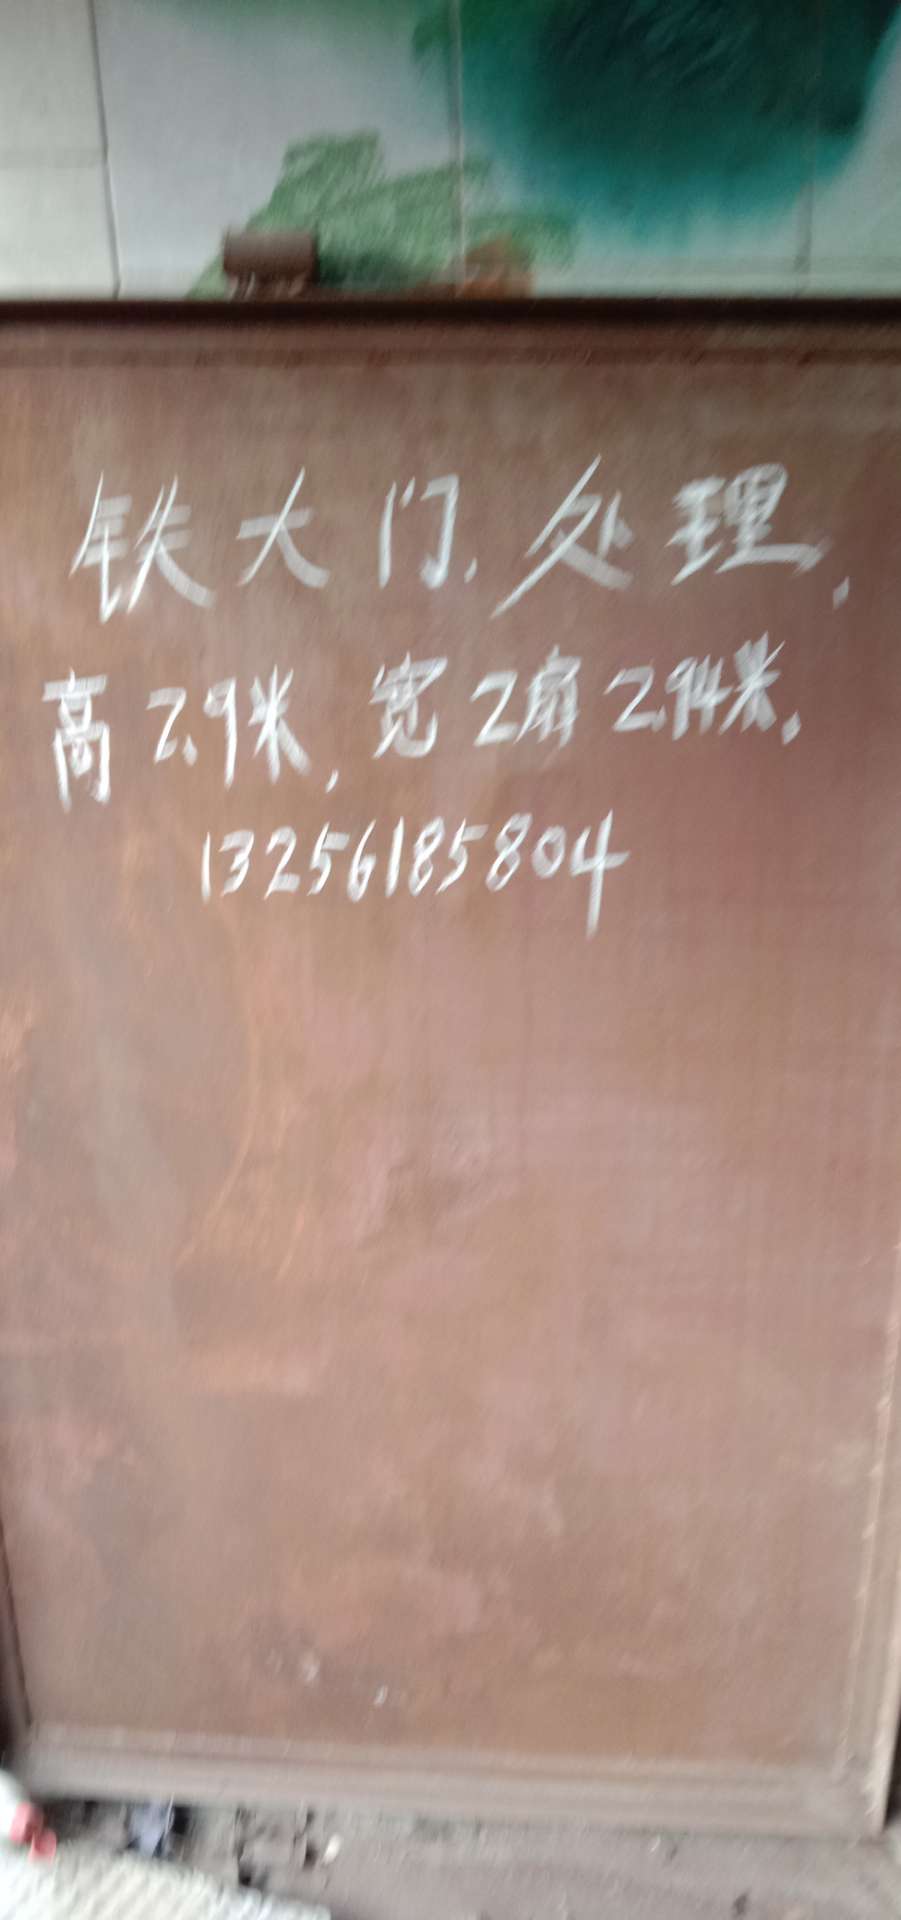 铁大门.处理.
高2.9米,宽2扇2.94米.
13256185804